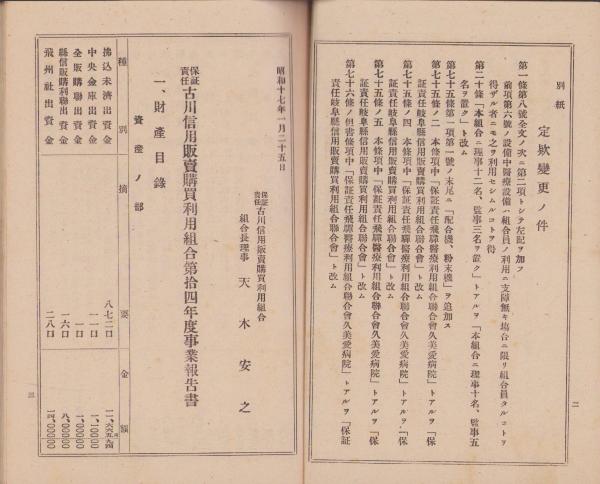 別紙
定欵變更ノ件
第一條第八號全文ノ次ニ第二項トシテ左記ヲ加フ
前項第六號ノ設備中醫療設備ハ組合員ノ利用ニ支障無キ塲合ニ限リ組合員タルコトヲ
得ザル者ニモ之ヲ利用セシムルコトヲ得
第二十條「本組合ニ理事十二名、監事三名ヲ置ク」トアルヲ「本組合ニ理事十名、監事五
名ヲ置ク」ト改ム
第七十五條第一項第一號ノ末尾ニ「配合機、粉末機」ヲ追加ス
第七十五條ノ二 本條項中「保証責任飛驒醫療利用組合聯合會久美愛病院」トアルヲ「保
証責任岐阜縣信用販賣購買利用組合聯合會」ト改ム
第七十五條ノ四 本條項中「保証責任飛驒醫療利用組合聯合會久美愛病院」トアルヲ「保
証責任岐阜縣信用販賣購買利用組合聯合會」ト改ム
第七十五條ノ五 本條項中「保証責任飛驒醫療利用組合聯合會久美愛病院」トアルヲ「保
証責任岐阜縣信用販賣購買利用組合聯合會」ト改ム
第七十六條ノ但書條項中「保証責任飛驒醫療利用組合聯合會久美愛病院」トアルヲ「保証
責任岐阜縣信用販賣購買利用組合聯合會」ト改ム
二
昭和十七年一月二十五日
保証責任古川信用販賣購買利用組合
組合長理事 天木安之
保証責任古川信用販賣購買利用組合第拾四年度事業報告書
一、財産目錄
資産ノ部
種別 摘要 金額
拂込未濟出資金 八七二口
中央金庫出資金 一一口 一、一〇〇〇〇
全販購聯出資金 一口 一、〇〇〇〇〇
縣信販購利聯出資金 一六口 八、〇〇〇〇〇
飛州社出資金 二八口 一四、〇〇〇〇〇
三